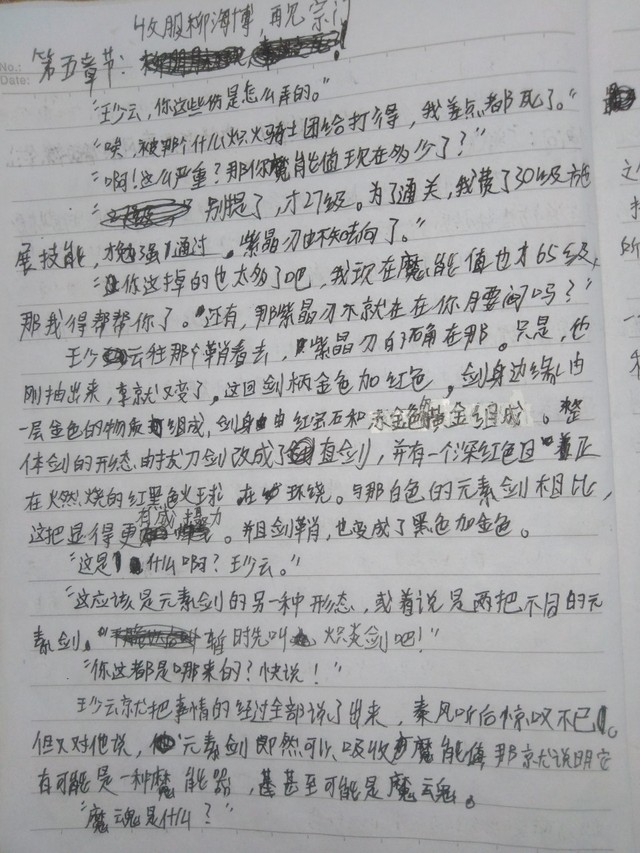 收服柳海博，再见宗门
No.:
Date:
第五章节：
"王少云，你这些伤是怎么弄的。"
"唉，被那个什么炽火骑士团给打得，我差点都死了。"
"啊！这么严重？那你魔能值现在多少了？"
"别提了，才27级。为了通关，我费了30级施
展技能，才勉强通过，紫晶刃也不知去向了。"
"你这掉的也太多了吧，我现在魔能值也才65级，
那我得帮帮你了。还有，那紫晶刃不就在在你腰间吗？"
王少云往那个鞘看去，紫晶刃的确在那。只是，他
刚抽出来，事就又变了，这回剑柄金色加红色，剑身边缘由
一层金色的物质组成，剑身由由红宝石和赤金色黄金组成。整
体剑的形态由拔刀剑改成了直剑，并有一个深红色且正
在火然烧的红黑色火球在环绕。与那白色的元素剑相比，
这把显得更有威摄力。并且剑鞘，也变成了黑色加金色。
"这是什么啊？王少云。"
"这应该是元素剑的另一种形态，或着说是两把不同的元
素剑，暂时先叫炽炎剑吧！"
"你这都是哪来的？快说！"
王少云就把事情的经过全部说了出来，秦风听后惊叹不已。
但又对他说，元素剑即然可以吸收魔能值那就说明它
有可能是一种魔能器，甚至可能是魔魂。
"魔魂是什么？"